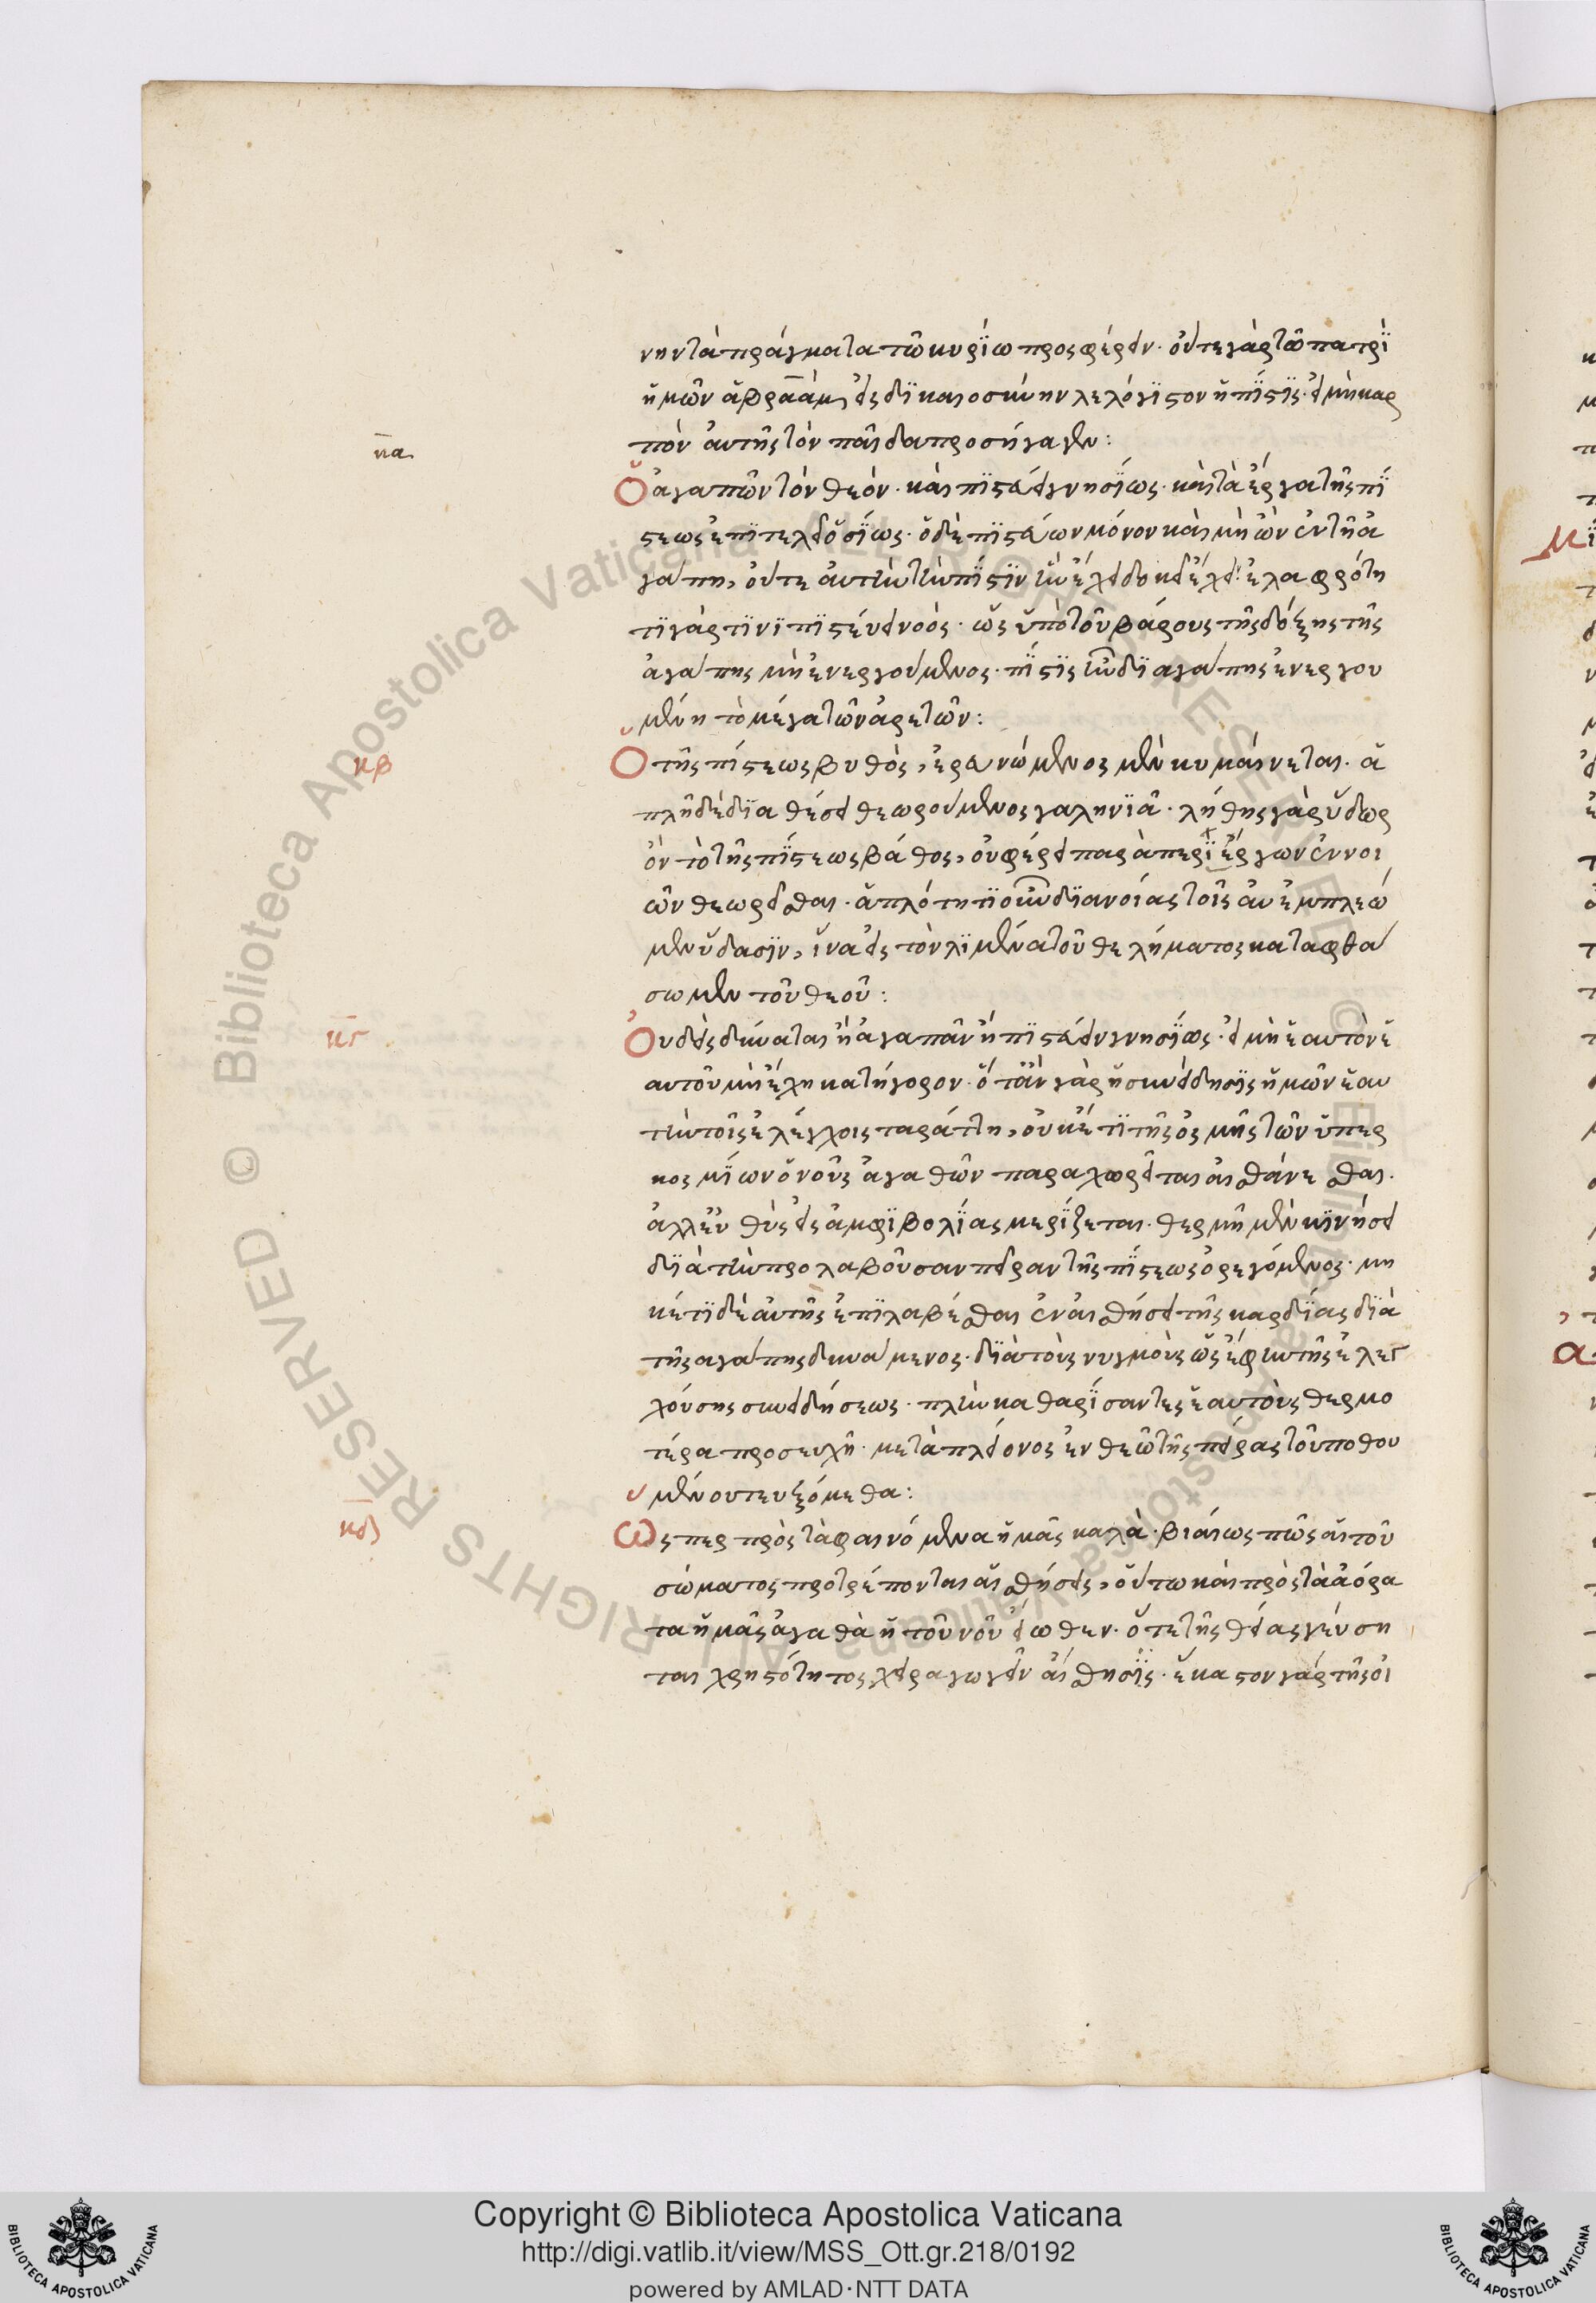 νην τὰ πράγματα τῶ κυρίω προσφέρειν· οὔτε γὰρ τῶ πατρὶ
ἡμῶν ἀβραὰμ, εἰς δικαιοσύνην λελόγιστον ἡ πίστις· εἰ μὴ καρ
πὸν αὐτῆς τὸν παῖδα προσήγαγεν:
κα
Ὁ ἀγαπῶν τὸν θεὸν· καὶ πιστεύει γνησίως· καὶ τὰ ἔργα τῆς πί
στεως ἐπιτελεῖ ὁσίως· ὁ δὲ πιστεύων μόνον καὶ μὴ ὢν ἐν τῆ ἀ
γάπη, οὔτε αὐτὴν τὴν πίστιν ἣν ἔχει δοκεῖ ἔχει· ἐλαφρότη
τι γάρ τινι πιστεύει νοὸς· ὡς ὑπὸ τοῦ βάρους τῆς δόξης τῆς
ἀγάπης μὴ ἐνεργούμενος· πίστις οὖν δι ἀγάπης ἐνεργου
μένη τὸ μέγα τῶν ἀρετῶν:
κβ
Ὁ τῆς πίστεως βυθὸς, ἐρευνώμενος μὲν κυμαίνεται· ἁ
πλῆ δὲ διαθέσει θεωρούμενος γαληνιᾶ· λήθης γὰρ ὕδωρ
ὂν τὸ τῆς πίστεως βάθος, οὐ φέρει παρὰ περὶ ἔργων ἐννοι
ῶν θεωρεῖσθαι· ἁπλότητι οὖν διανοίας τοῖς αὐ ἐμπλέω
μεν ὕδασιν, ἵνα εἰς τὸν λιμένα τοῦ θελήματος καταφθά
σωμεν τοῦ θεοῦ:
κγ
Οὐδεὶς δύναται ἢ ἀγαπᾶν ἢ πιστεύειν γνησίως· εἰ μὴ ἑαυτὸν ἑ
αυτοῦ μὴ ἔχη κατήγορον· ὅταν γὰρ ἡ συνείδησις ἡμῶν ἑαυ
τὴν τοῖς ἐλέγχοις ταράττη, οὐκέτι τῆς ὀσμῆς τῶν ὑπερ
κοσμίων ὁ νοῦς ἀγαθῶν παραχωρεῖται αἰσθάνεσθαι·
ἀλλ εὐθὺς εἰς ἀμφιβολίας μερίζεται· θερμῆ μὲν κινήσει
διὰ τὴν προλαβοῦσαν πεῖραν τῆς πίστεως ὀρεγόμενος· μη
κέτι δὲ αὐτῆς ἐπιλαβέσθαι ἐν αἰσθήσει τῆς καρδίας διὰ
τῆς ἀγάπης δυνάμενος· διὰ τοὺς νυγμοὺς ὡς ἔφην τῆς ἐλεγ
χούσης συνειδήσεως· πλὴν καθαρίσαντες ἑαυτοὺς θερμο
τέρα προσευχῆ· μετὰ πλείονος ἐν θεῶ τῆς πείρας τοῦ ποθου
μένου τευξόμεθα:
κδ
Ὥσπερ πρὸς τὰ φαινόμενα ἡμᾶς καλὰ· βιαίως πῶς αἱ τοῦ
σώματος προτρέπονται αἰσθήσεις, οὕτω καὶ πρὸς τὰ ἀόρα
τα ἡμᾶς ἀγαθὰ ἡ τοῦ νοῦ εἴωθεν· ὅτε τῆς θείας γεύση
ται χρηστότητος χειραγωγεῖν αἴσθησις· ἕκαστον γὰρ τῆς οἰ
Copyright © Biblioteca Apostolica Vaticana
http://digi.vatlib.it/view/MSS_Ott.gr.218/0192
powered by AMLAD·NTT DATA